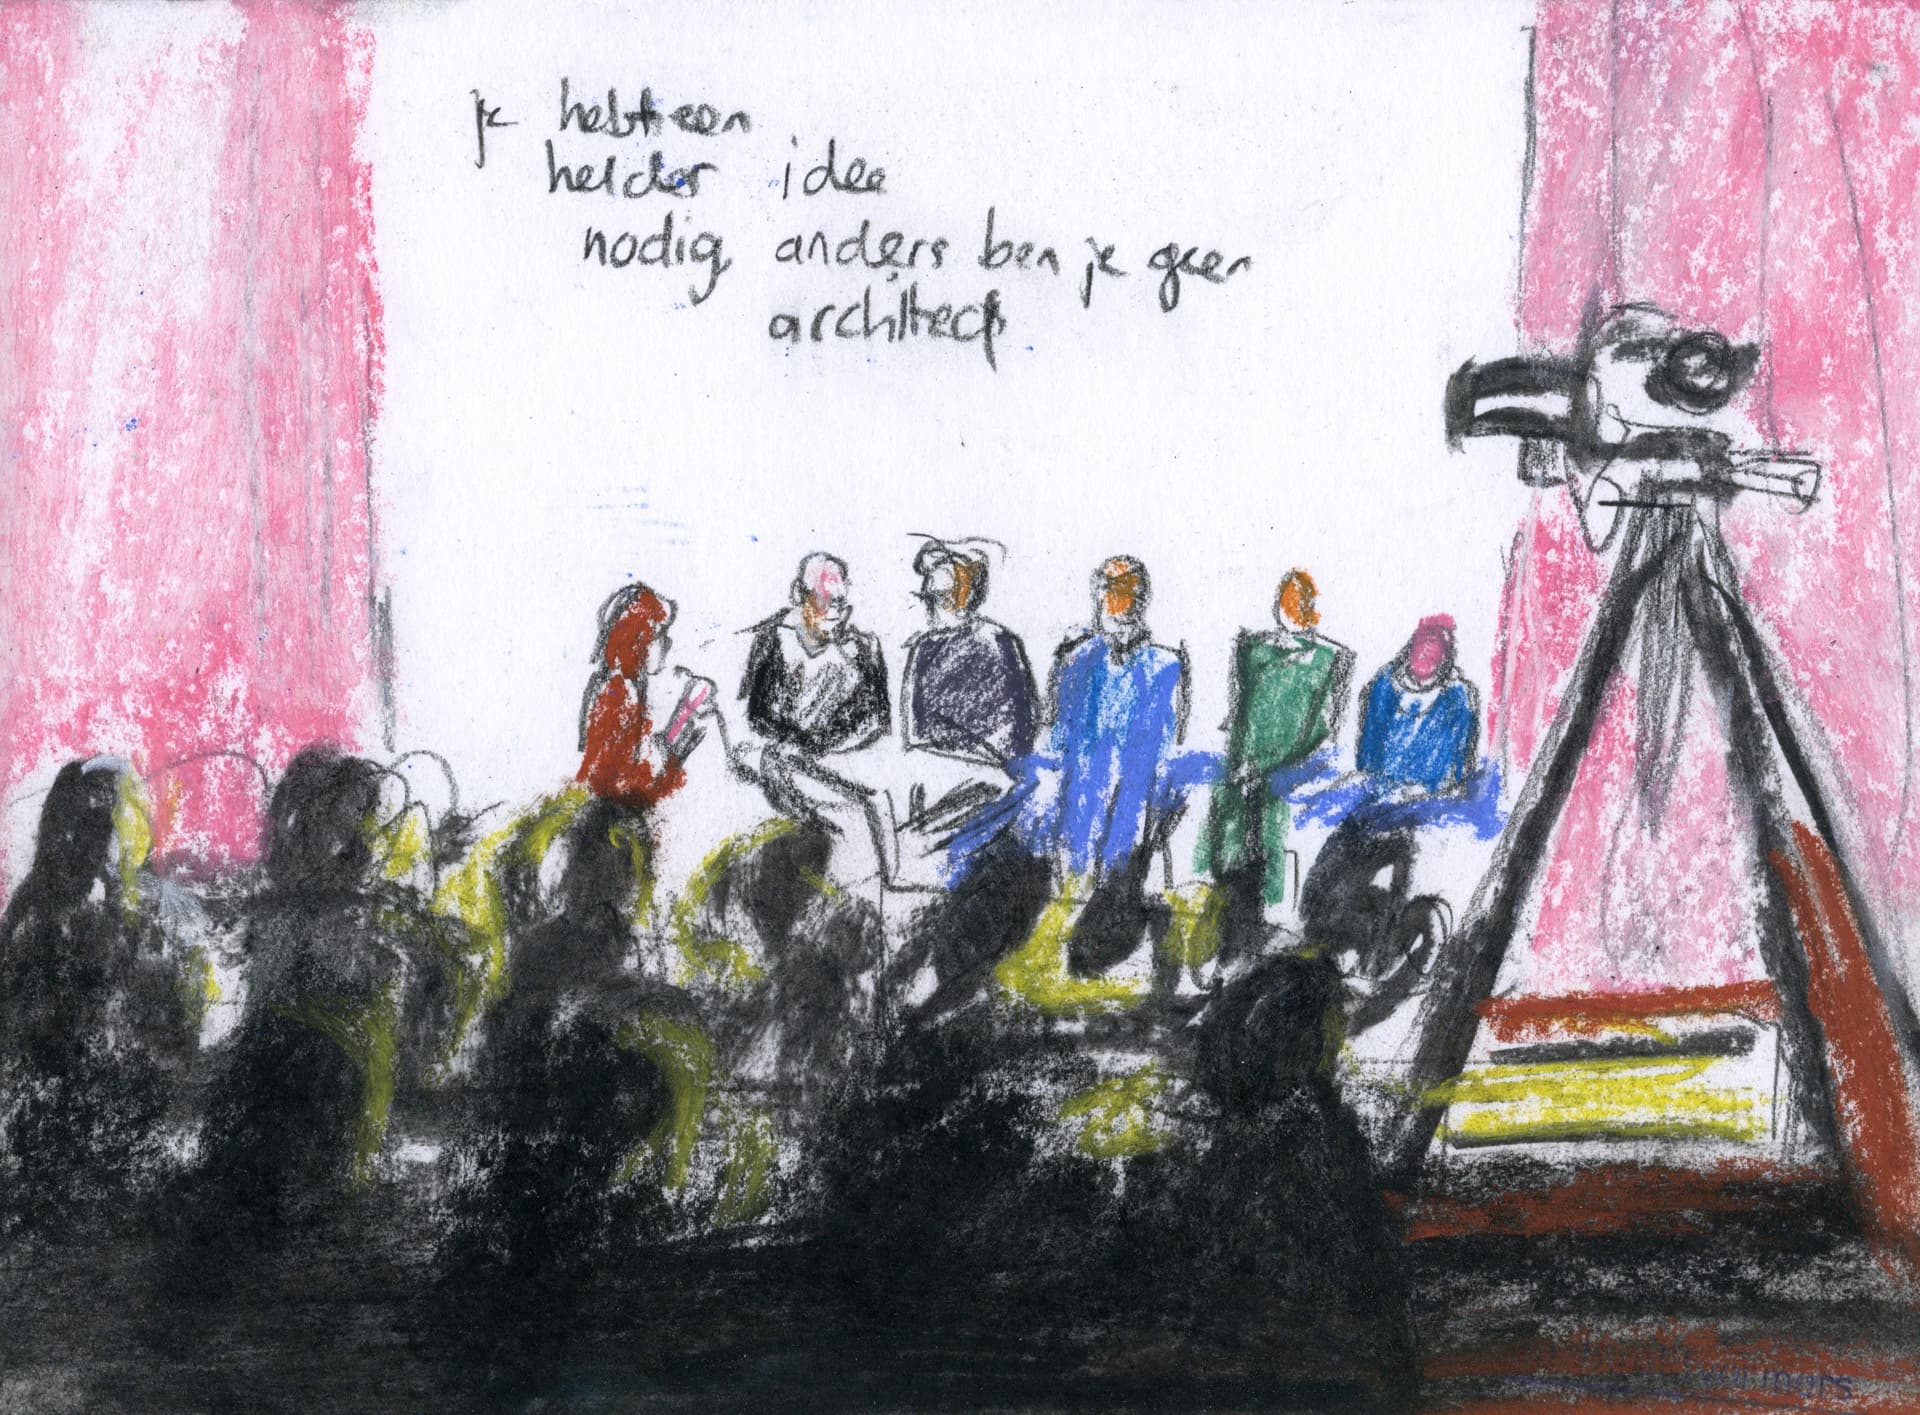 je hebt een
helder idee
nodig anders ben je geen
architect